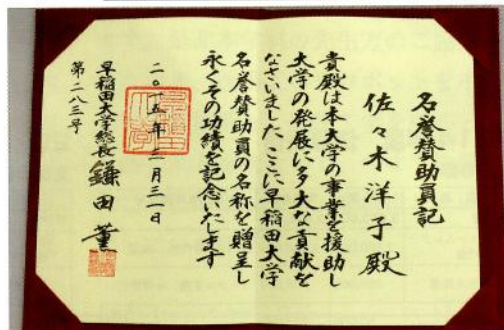 名誉賛助員記
佐々木洋子殿
貴殿は本大学の事業を援助し
大学の発展に多大な貢献を
なさいました ここに早稲田大学
名誉賛助員の名称を贈呈し
永くその功績を記念いたします
二〇十五年三月三一日
早稲田大学総長鎌田薫
第二八三号